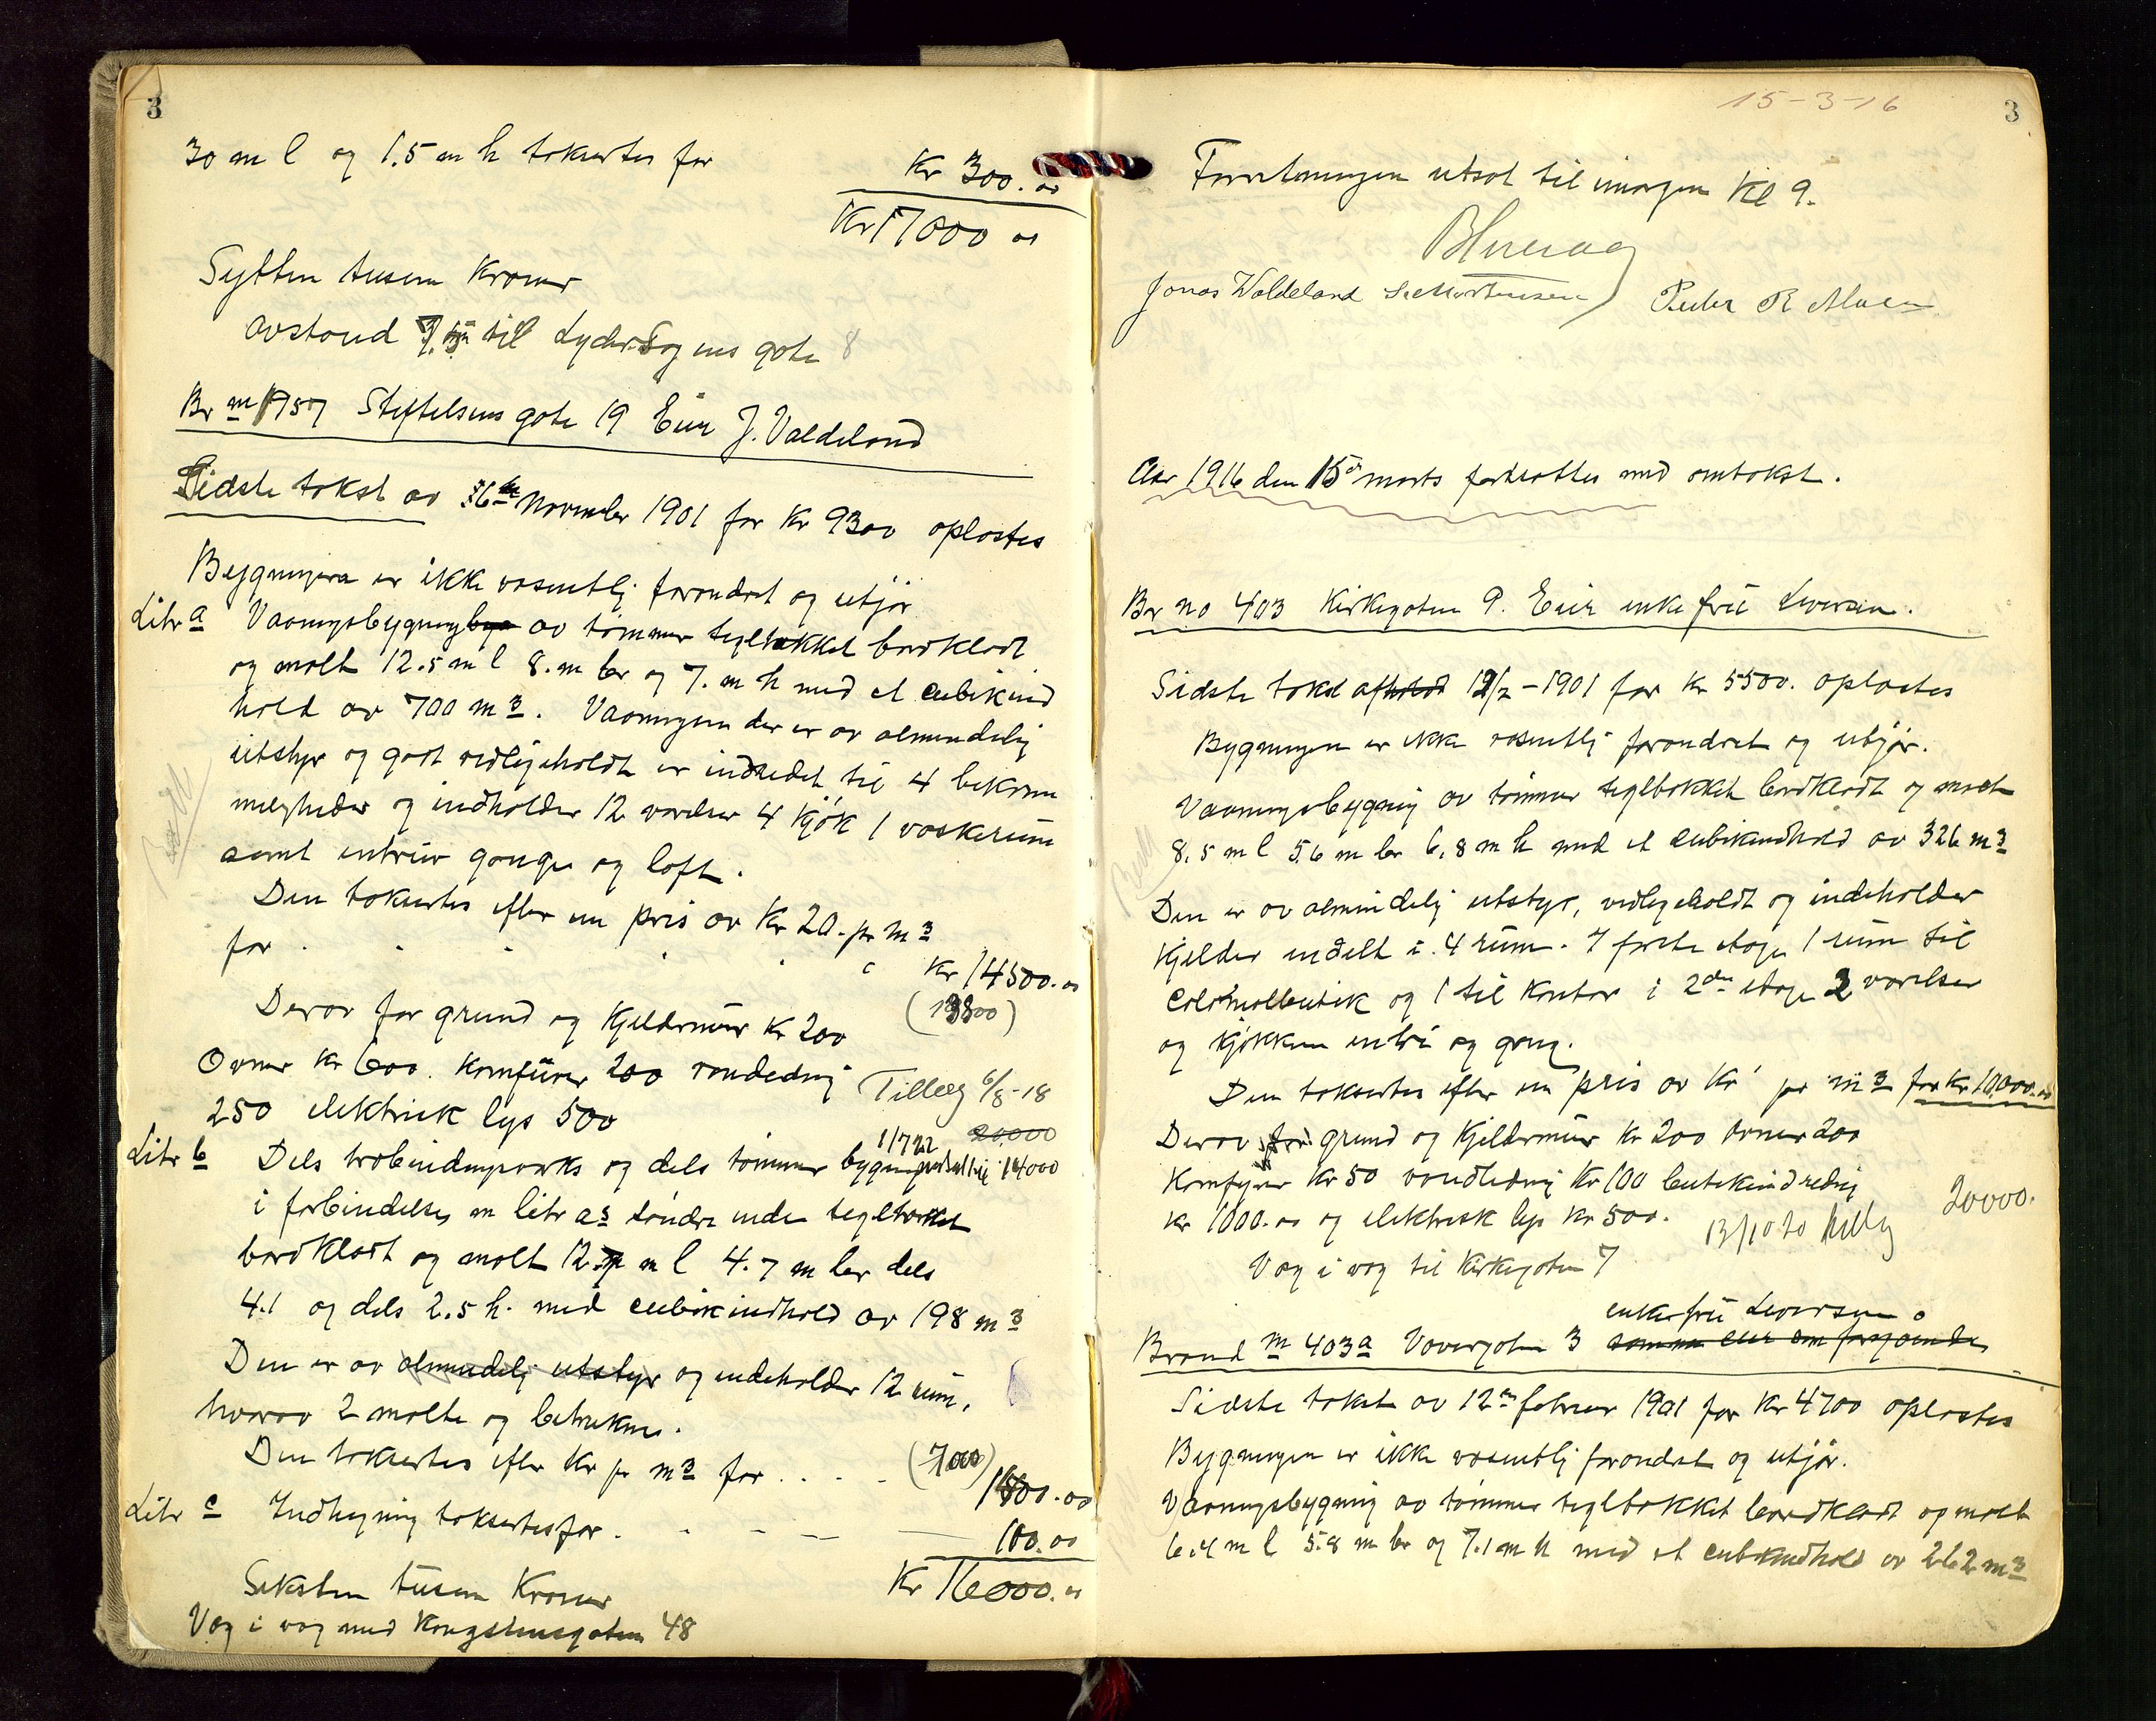 3
30 m l og 1.5 m h takseres for Kr 300.00
Kr 17000 00
Sytten tusen Kroner
avstand 7.5 m til Lyder Sagens gate 8
Br no 1957 Stiftelsens gate 19 Eier J. Valdeland
Sidste takst av 26de November 1901 for Kr 9300 oplæstes
Bygningene er ikke væsentlig forandret og utgjør
Litr a Vaaningsbygning av tømmer tegltækket bordklædt
og malt 12.5 m l 8. m br og 7. m h med et cubikind
hold av 700 m3. Vaaningen der er av almindelig
utstyr og godt vedligeholdt er indredet til 4 bekvem
meligheder og indholder 12 værelser 4 kjøk 1 vaskerum
samt entreer gange og loft.
Den takseres efter en pris av Kr 20.- pr m3
for Kr 14500.00
(13800)
Derav for grund og Kjeldermur Kr 200
Ovner Kr 600. Komfurer 200 vandledning
250 elektrisk lys 500
Tillæg 6/8-18
20,000
1/7 22 14000
Litr b Dels utbindingsverks og dels tømmer bygning
i forbindelse m litr a's søndre ende tegltækket
bordklædt og malt 12. m l 4.7 m br dels
4.1 og dels 2.5 h. med cubikindhold av 198 m3
Den er av almindelig utstyr og indeholder 12 rum,
hvorav 2 malte og betrukne.
Den takseres efter Kr pr m3 for .... (700)
1400.00
Litr c Indhegning takseres for . - - — 100.00
Seksten tusen Kroner Kr 16000.00
Væg i væg med Kongsteensgaten 48
15-3-16
3
Forretningen utsat til imorgen Kl 9.
Jonas Waldeland Peder R
Aar 1916 den 15de marts fortsattes med omtakst.
Br no 403 Kirkegaten 9. Eier enkefru Iversen.
Sidste takst afholdt 12/2-1901 for Kr 5500. oplæstes
Bygningen er ikke væsentlig forandret og utgjør.
Vaaningsbygning av tømmer tegltækket bordklædt og malt
8,5 m l 5,6 m br 6,8 m h med et cubikindhold av 326 m3
Den er av almindelig utstyr, vedligeholdt og indeholder
Kjelder inddelt i 4 rum. I første etage 1 rum til
Colonialbutik og 1 til Kontor i 2den etage 2 værelser
og kjøkken entre og gang.
Den takseres efter en pris av Kr pr m3 for Kr 10,000.00
Derav for grund og Kjeldermur Kr 200 Ovner 200
Komfyrer Kr 50 vandledning Kr 100 butikindredning
Kr 1000.00 og elektrisk lys Kr 500.
13/10 20 tillæg 20000.
Væg i væg til Kirkegaten 7
enkefru Iversen
Brand no 403a Vævergaten 3 samme eier som foregaaende
Sidste takst av 12te februar 1901 for Kr 4700 oplæstes
Bygningen er ikke væsentlig forandret og utgjør.
Vaaningsbygning av tømmer tegltækket bordklædt og malt
6.4 m l 5.8 m br og 7.1 m h med et cubikindhold av 262 m3